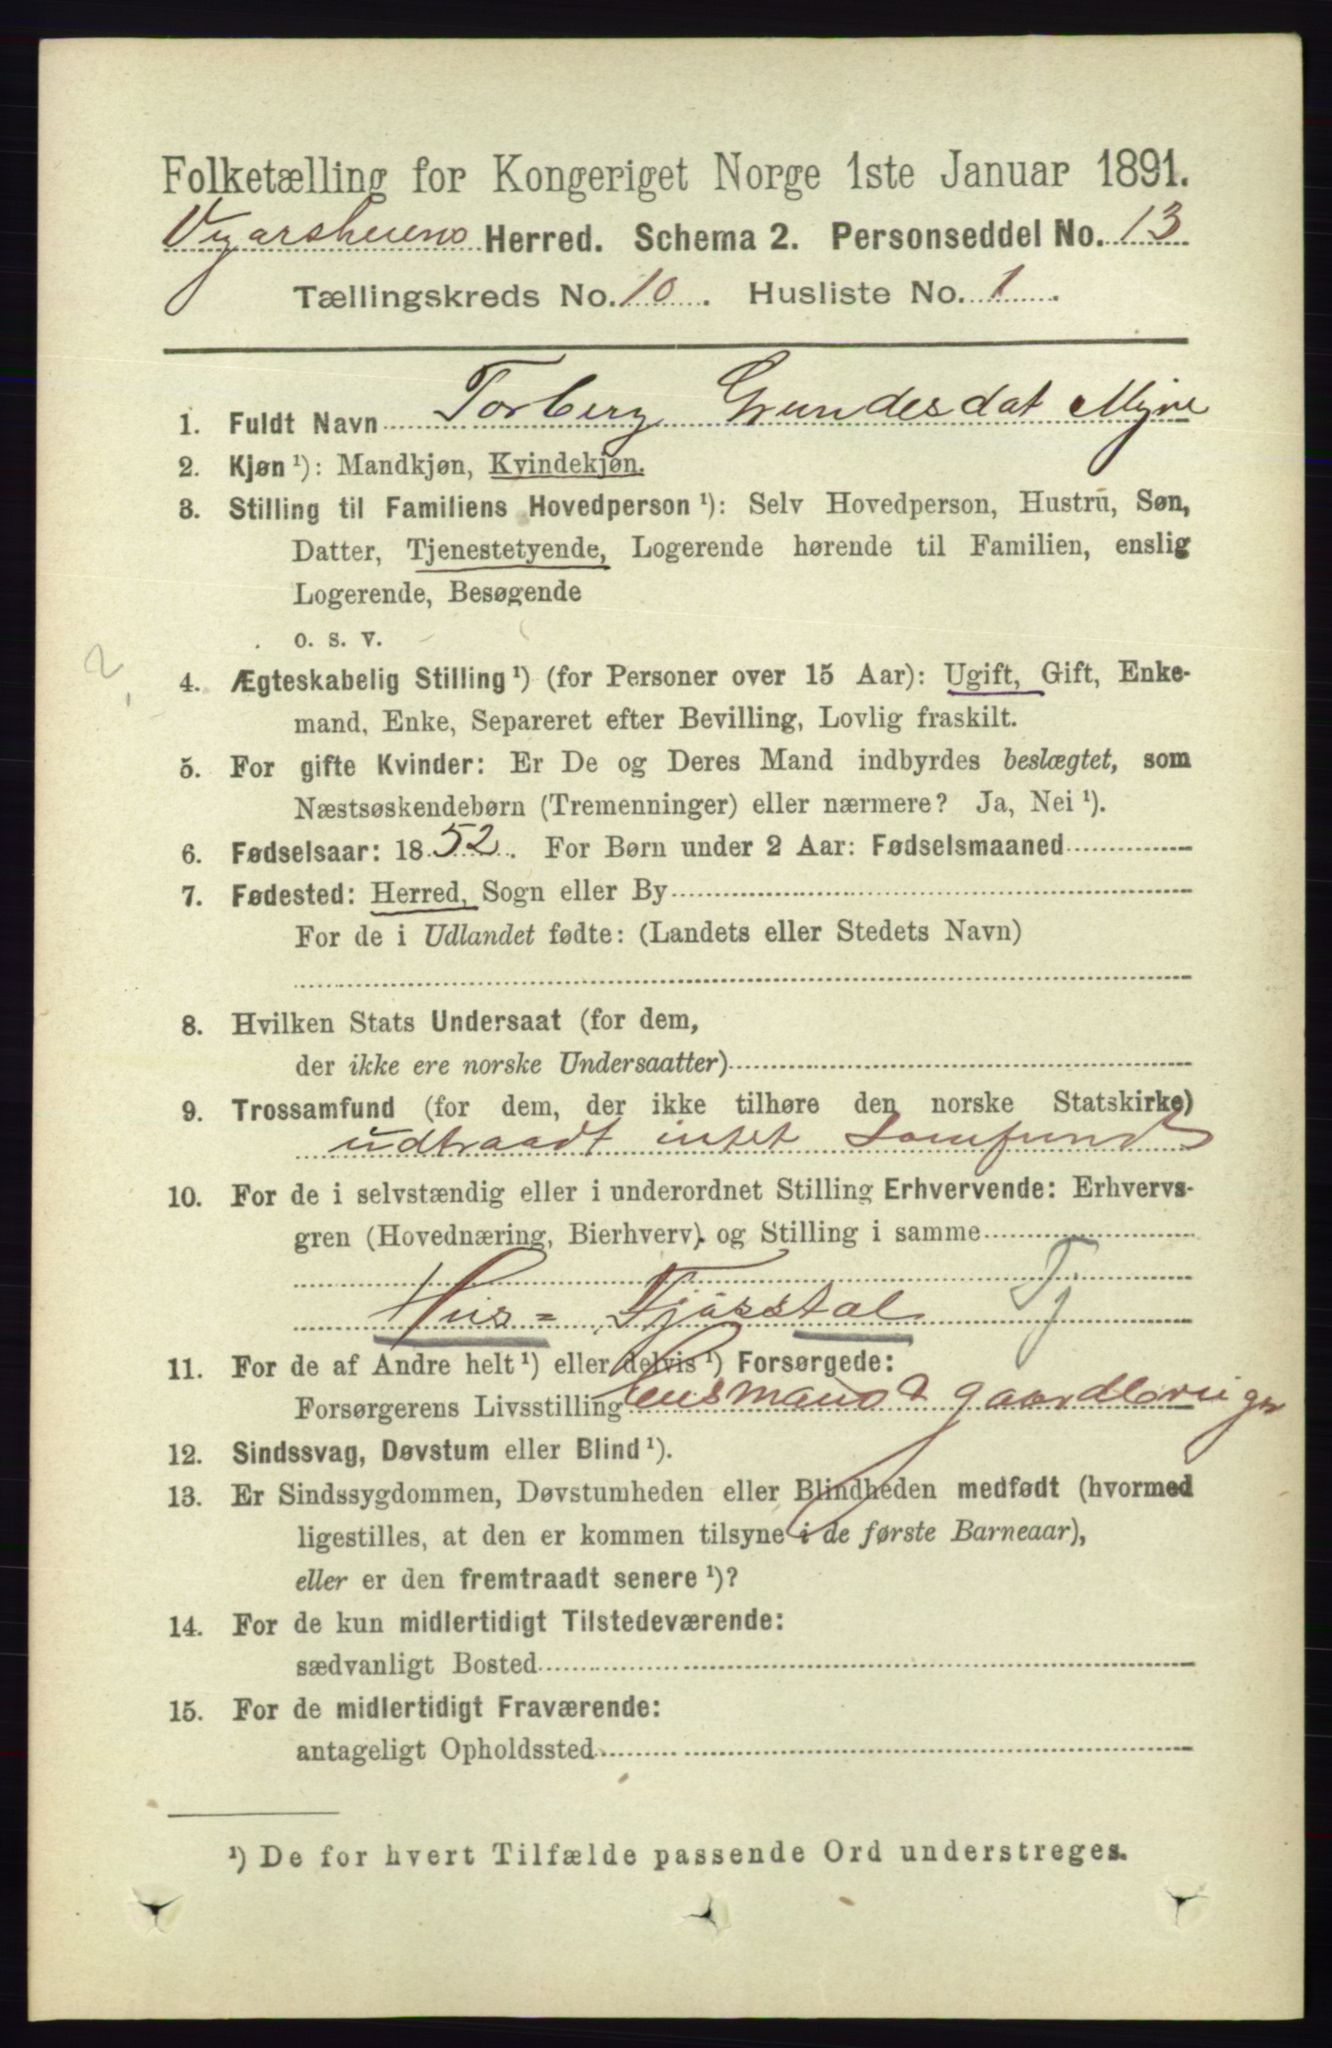 Folketælling for Kongeriget Norge 1ste Januar 1891.
Vegarsheiens Herred. Schema 2. Personseddel No. 13
Tællingskreds No. 10. Husliste No. 1.
1. Fuldt Navn Torberg Grundesdat Myre
2. Kjøn ¹): Mandkjøn, Kvindekjøn.
3. Stilling til Familiens Hovedperson ¹): Selv Hovedperson, Hustru, Søn,
Datter, Tjenestetyende, Logerende hørende til Familien, enslig
Logerende, Besøgende
o. s. v.
2
4. Ægteskabelig Stilling ¹) (for Personer over 15 Aar): Ugift, Gift, Enke-
mand, Enke, Separeret efter Bevilling, Lovlig fraskilt.
5. For gifte Kvinder: Er De og Deres Mand indbyrdes beslægtet, som
Næstsøskendebørn (Tremenninger) eller nærmere? Ja, Nei ¹).
6. Fødselsaar: 1852. For Børn under 2 Aar: Fødselsmaaned
7. Fødested: Herred, Sogn eller By
For de i Udlandet fødte: (Landets eller Stedets Navn)
8. Hvilken Stats Undersaat (for dem,
der ikke ere norske Undersaatter)
9. Trossamfund (for dem, der ikke tilhøre den norske Statskirke)
udtraadt intet Samfund
10. For de i selvstændig eller i underordnet Stilling Erhvervende: Erhvervs-
gren (Hovednæring, Bierhverv) og Stilling i samme
Hus= Fjösstal Tj
11. For de af Andre helt ¹) eller delvis ¹) Forsørgede:
Forsørgerens Livsstilling Lensmand &
12. Sindssvag, Døvstum eller Blind ¹).
13. Er Sindssygdommen, Døvstumheden eller Blindheden medfødt (hvormed
ligestilles, at den er kommen tilsyne i de første Barneaar),
eller er den fremtraadt senere ¹)?
14. For de kun midlertidigt Tilstedeværende:
sædvanligt Bosted
15. For de midlertidigt Fraværende:
antageligt Opholdssted
¹) De for hvert Tilfælde passende Ord understreges.